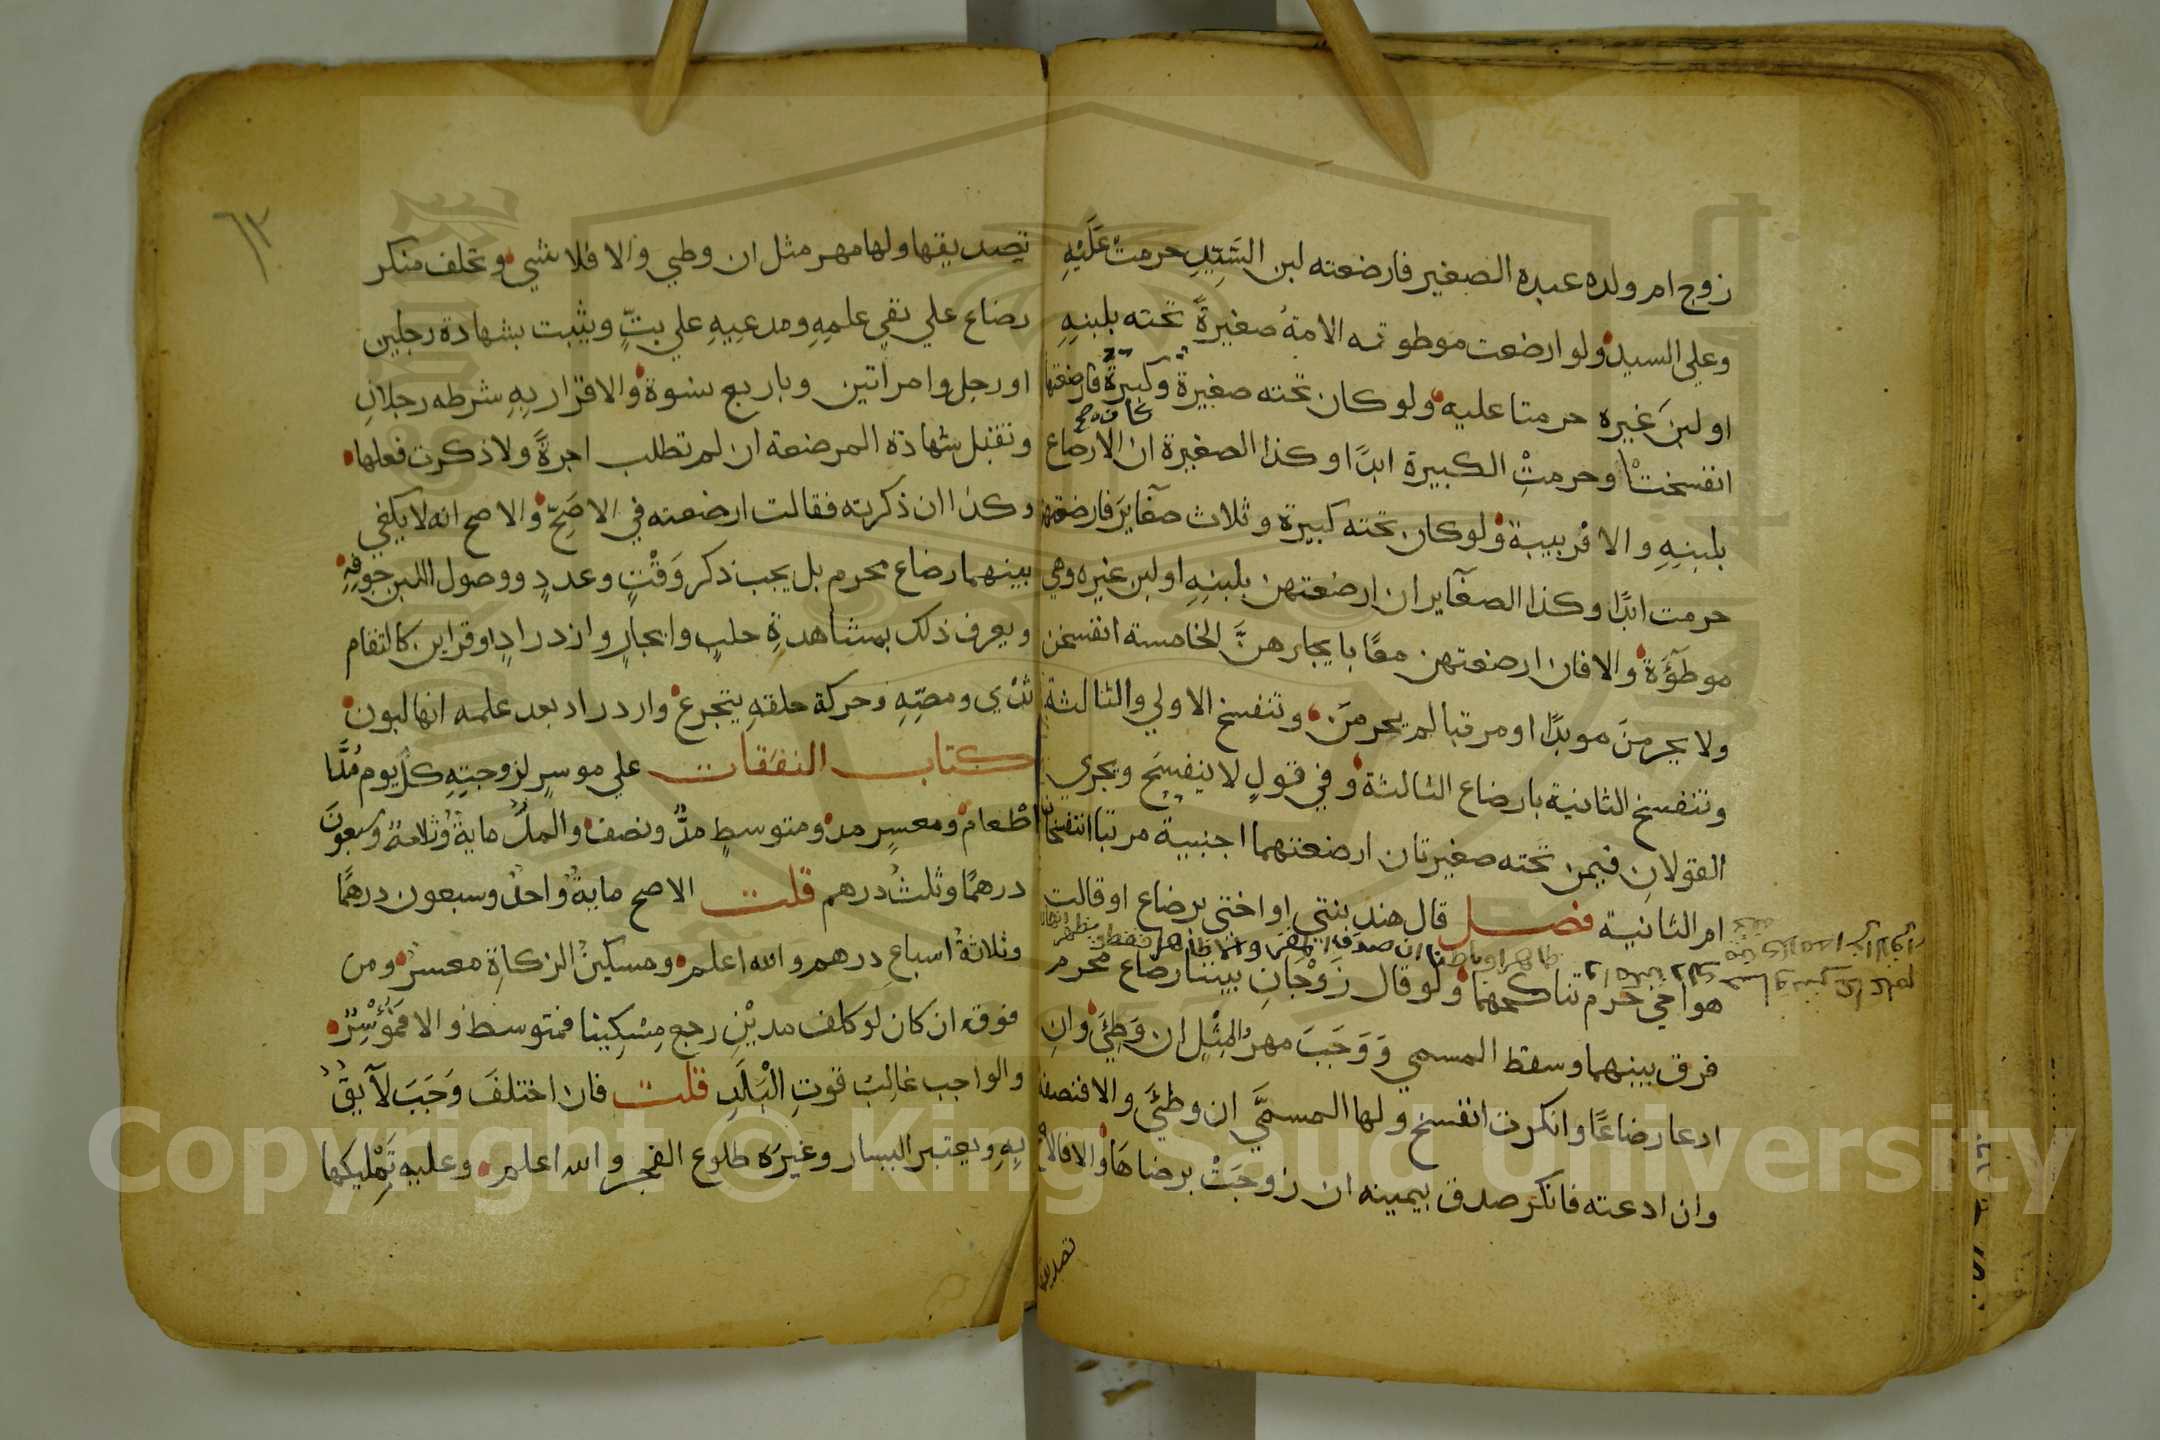 زوج ام ولده عبده الصغير فارضعته لبن السَّيِّدِ حرمتْ عَلَيْهِ
وعلي السيد ولو ارضعت موطوته الامةُ صغيرةً تحته بلبنِهِ
او لبنَ غيره حرمتا عليه ولو كان تحته صغيرة وكبيرة فارضعتها
انفسختا وحرمتِ الكبيرة ابدًا وكذا الصغيرة ان كان الارضاع
بلبنِهِ والا فربيبة ولو كان تحته كبيرة وثلاث صغايرَ فارضعتهن
حرمت ابدًا وكذا الصغاير ان ارضعتهن بلبنِهِ او لبن غيره وهي
موطوَّةَ والا فان ارضعتهن معًا بايجارهنَّ الخامسة انفسخن
ولا يحرمنَ موبدًا او مرتبا لم يحرمنَ وتنفسخ الاولي والثالثة
وتنفسخ الثانية بارضاع الثالثة وفي قولٍ لا ينفسخ ويجري
القولانِ فيمن تحته صغيرتان ارضعتهما اجنبية مرتبا اتنفسخان
ام الثانية فصل قال هند بنتي او اختي برضاع او قالت
هو اخي حرم تناكحهما ولو قال زَوْجانِ بيننا رضاع محرم
فرق بينهما وسقط المسمي وَوَجَبَ مهرُ المِثْلِ ان وَطِيَ وان
ادعا رضاعًا وانكرت انفسخ ولها المسمَّي ان وطيَ والا فنصفه
وان ادعته فانكر صدق بيمينه ان زوجَتْ برضاهَا والا فالاصح
تصديقها
٦٣
تصديقها ولها مهر مثل ان وطي والا فلا شي وتحلف منكر
رضاع علي نفي علمِهِ ومدعِيهِ علي بتٍّ ويثبت بشهادة رجلين
او رجل وامراتين وباربع نسوة والاقرار بِهِ شرطه رجلانِ
وتقبل شهادة المرضعة ان لم تطلب اجرةً ولا ذكرت فعلها
وكذا ان ذكرته فقالت ارضعته في الاصَحِّ والاصح انه لا يكفي
بينهما رضاع محرم بل يجب ذكر وَقْتٍ وعددٍ ووصول اللبن جوفه
ويعرف ذلك بمشاهدةِ حلبٍ وايجارٍ وازدرادٍ او قراين كالتقام
ثدْيٍ ومصّهِ وحركة حلقهِ بتجرعٍ وازدراد بعد علمه انها لبون
كتاب النفقات علي موسرٍ لزوجتِهِ كلَّ يوم مُدَّا
طعام ومعسرٍ مد ومتوسطٍ مدٌّ ونصف والمدُّ مايةٌ وثلاثةٌ وسبعونَ
درهمًا وثلثُ درهم قلت الاصح مايةٌ واحدٌ وسبعون درهمًا
وثلاثةُ اسباعِ درهم والله اعلم ومسكينُ الزكاةِ معسرٌ ومن
فوقه ان كان لو كلف مديْنِ رجع مِسْكِينا فمتوسط والا فمُوْسِرٌ
والواجب غالبُ قوتِ الْبَلَدِ قلت فان اختلفَ وَجَبَ لآيقٌ
بِهِ ويعتبر اليسار وغيرَه طلوع الفجر والله اعلم وعليه تَمْليكها
Copyright © King Saud University